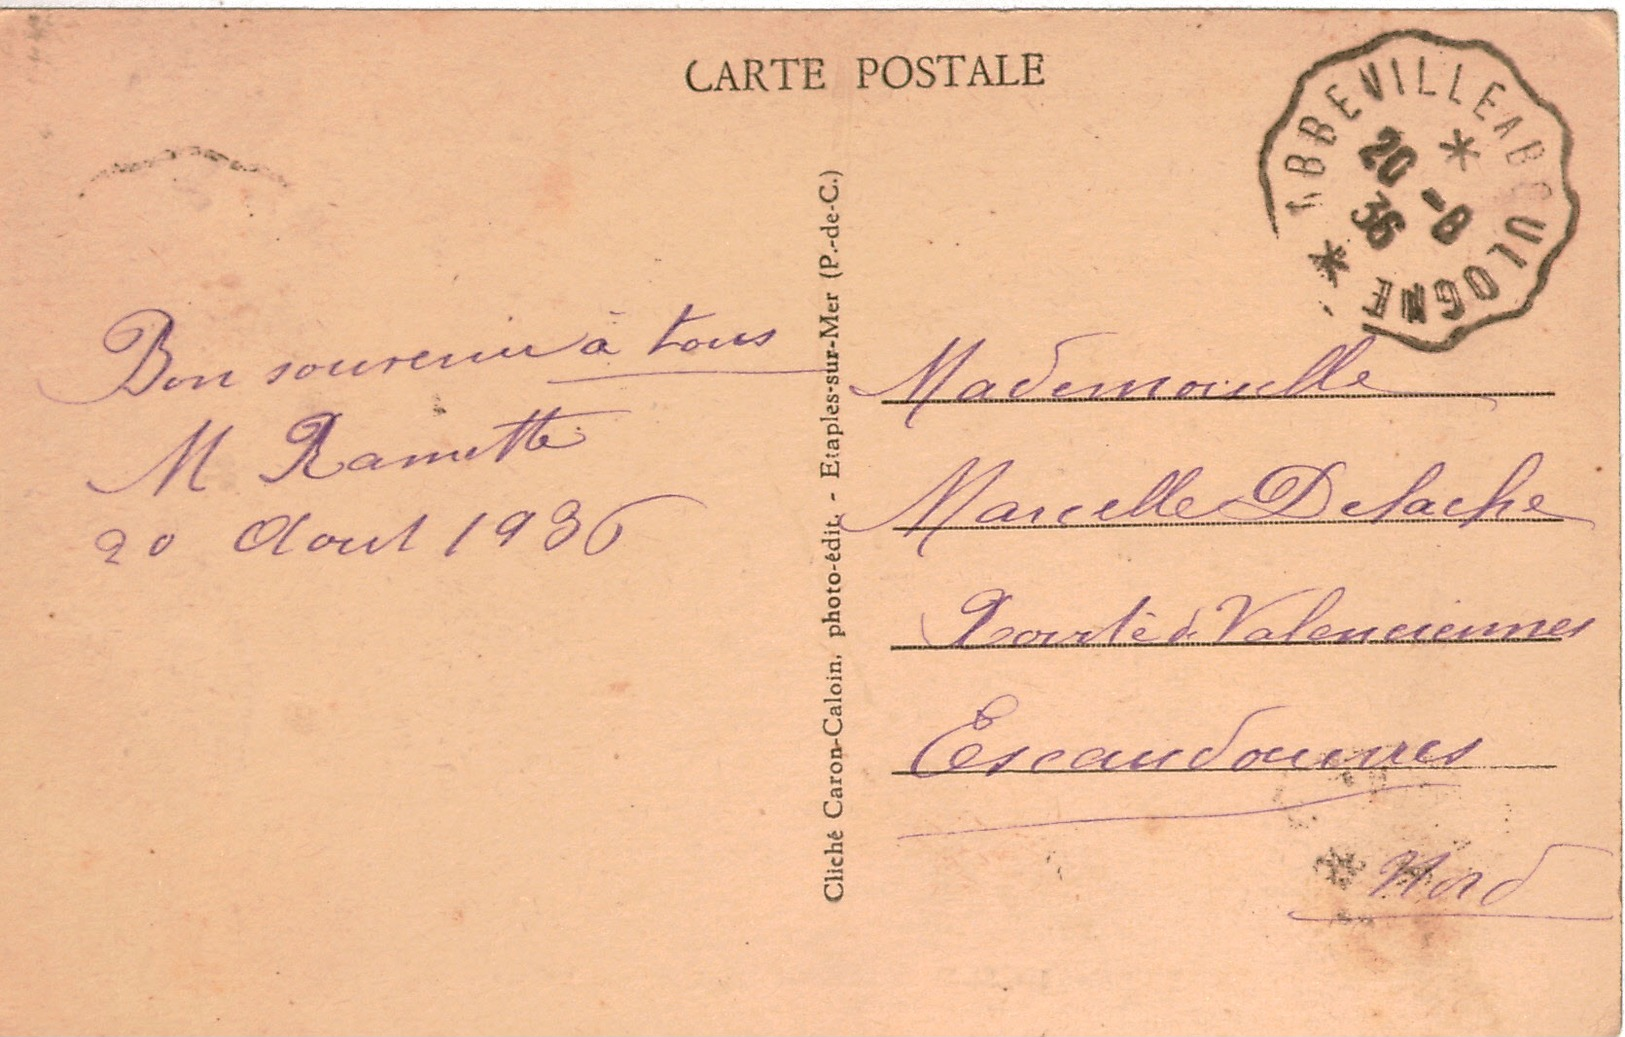 CARTE POSTALE
ABBEVILLE A BOULOGNE
20 -8
36
Bon souvenir à tous
M Ramette
20 Aout 1936
Cliché Caron-Caloin, photo-édit. - Etaples-sur-Mer (P.-de-C.)
Mademoiselle
Marcelle
Valenciennes
Escaudoeuvres
Nord